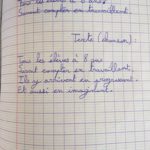 Tous les élèves à 8 ans
Savent compter en travaillant.
Texte (demain):
Tous les élèves à 8 ans
Savent compter en travaillant.
Ils y arrivent en progressant.
Et aussi en imaginant.